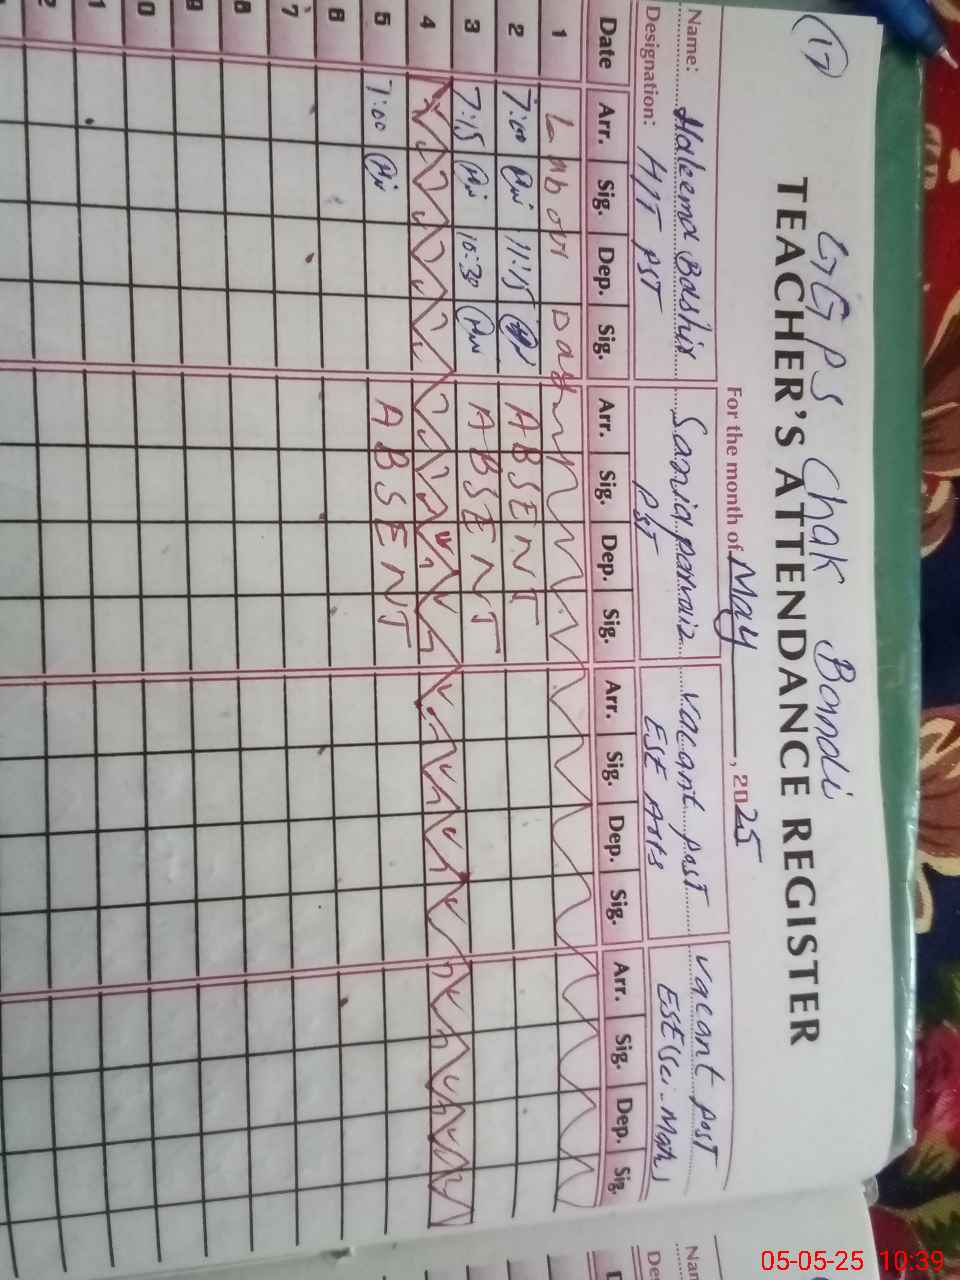 (17)
GGPS Chak Bandi
TEACHER'S ATTENDANCE REGISTER
For the month of May, 2025
Name: Haleema Bashir Samia parvaiz vacant post vacant post
Designation: H/T PST PST ESE Arts ESE (Sci-Math)
Date Arr. Sig. Dep. Sig. Arr. Sig. Dep. Sig. Arr. Sig. Dep. Sig. Arr. Sig. Dep. Sig.
1 Labour Day
2 7:00 11:15 ABSENT
3 7:15 10:30 ABSENT
4
5 7:00 ABSENT
6
7
8
9
0
1
2
Nam
De
05-05-25 10:39